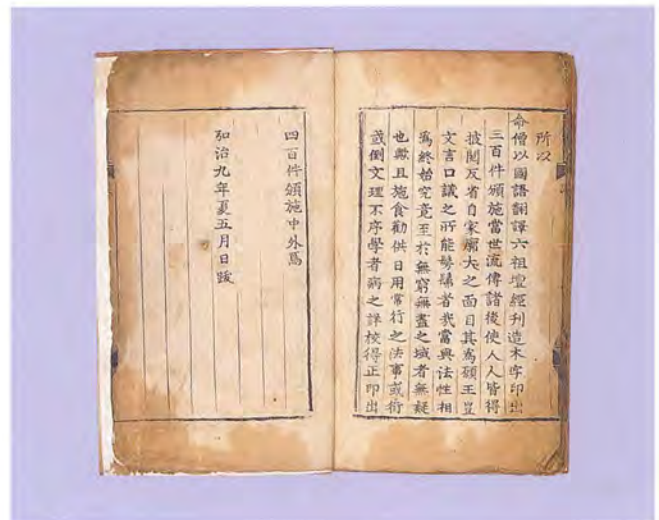 所以
命僧以國語翻譯六祖壇經刊造木字印出
三百件頒施當世流傳諸後使人人皆得
披閱反省自家廓大之面目其為願王豈
文言口議之所能髣髴者哉當與法性相
為終始究竟至於無窮無盡之域者無疑
也歟且施食勸供日用常行之法事或衍
或倒文理不序學者病之詳校得正印出
四百件頒施中外焉
弘治九年夏五月日跋